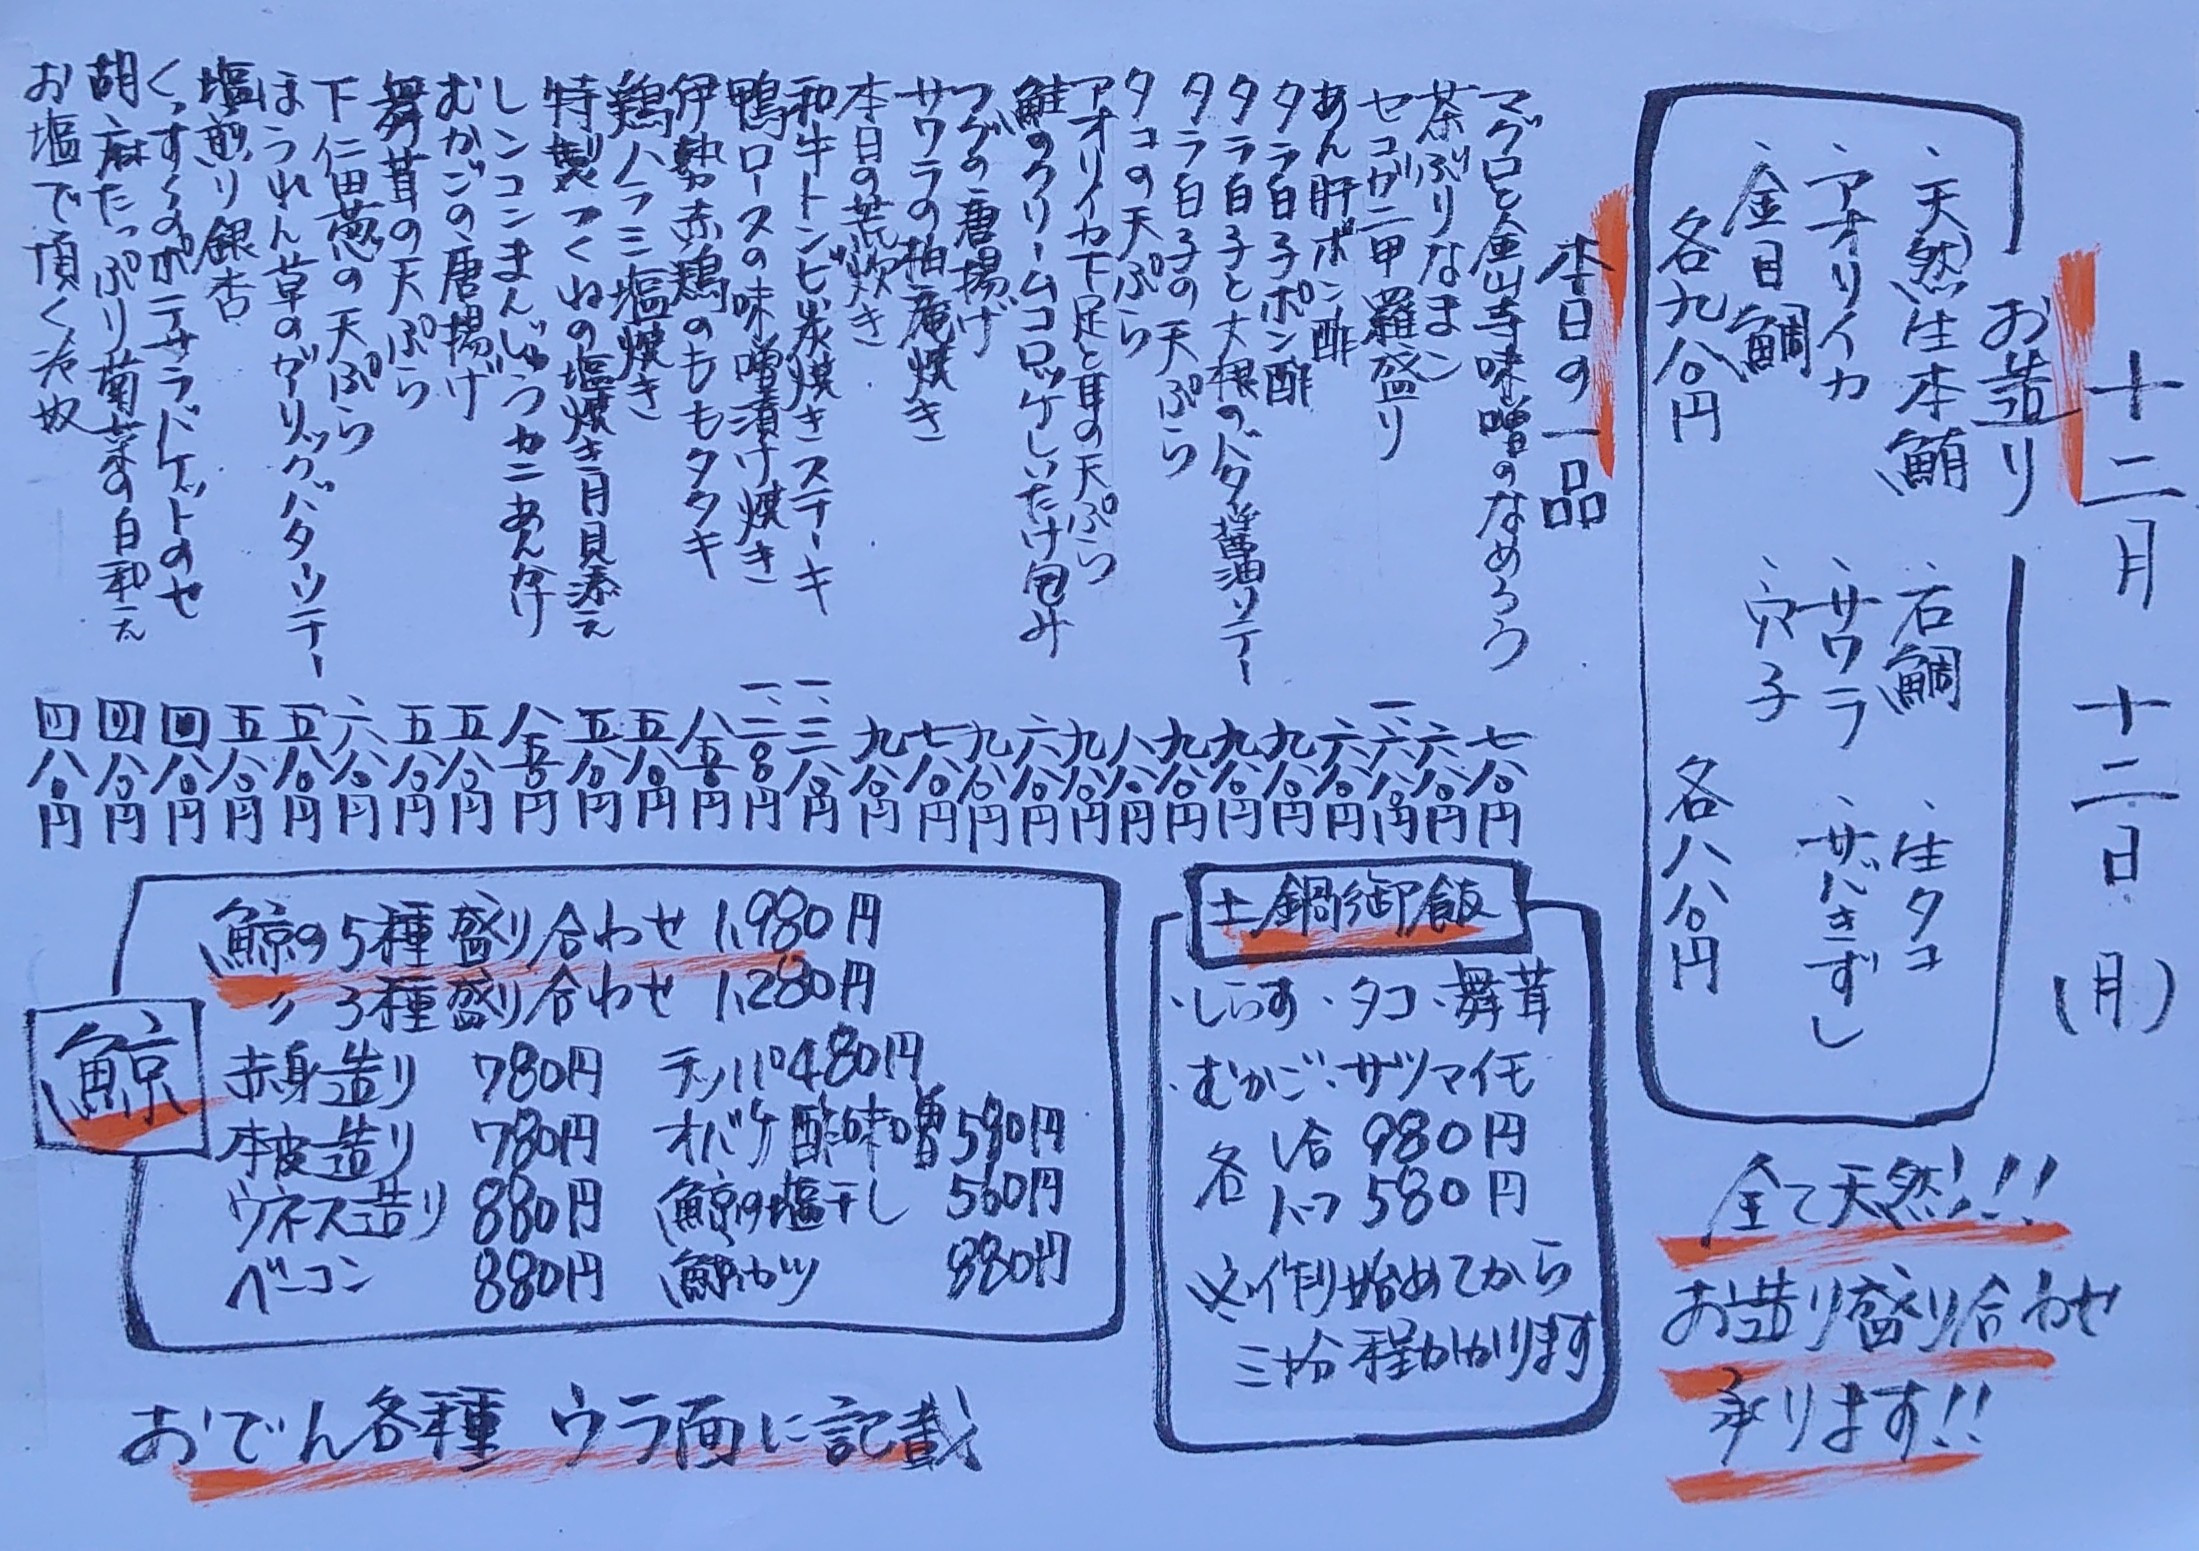 十二月 十二日(月)
お造り
・天然生本鮪 ・石鯛 ・生タコ
・アオリイカ ・サワラ ・サバきずし
・金目鯛 ・穴子
各九八〇円 各八八〇円
全て天然!!
お造り盛り合わせ
承ります!!
本日の一品
マグロと金山寺味噌のなめろう 七八〇円
茶ぶりなまこ 六八〇円
セコガニ甲羅盛り 一、六八〇円
あん肝ポン酢 六八〇円
タラ白子ポン酢 九八〇円
タラ白子と大根のバタ醤油ソテー 九八〇円
タラ白子の天ぷら 九八〇円
タコの天ぷら 八八〇円
アオリイカ下足と耳の天ぷら 九八〇円
鮭のクリームコロッケしいたけ包み 六八〇円
フグの唐揚げ 九八〇円
サワラの柚庵焼き 七八〇円
本日の荒炊き 九八〇円
和牛トンビ炭焼きステーキ 一、三八〇円
鴨ロースの味噌漬け焼き 一、二八〇円
伊勢赤鶏のももタタキ 八五〇円
鶏ハラミ塩焼き 五八〇円
特製つくねの塩焼き月見添え 五八〇円
レンコンまんじゅうカニあんかけ 八五〇円
むかごの唐揚げ 五八〇円
舞茸の天ぷら 五八〇円
下仁田葱の天ぷら 六八〇円
ほうれん草のガーリックバターソテー 五八〇円
塩煎り銀杏 五八〇円
くっすくのポテサラバケットのせ 四八〇円
胡麻たっぷり菊菜の白和え 四八〇円
お塩で頂く冷奴 四八〇円
土鍋御飯
・しらす・タコ・舞茸
・むかご・サツマイモ
各 1合 980円
ハーフ 580円
※作り始めてから
三十分程かかります
鯨
鯨の5種盛り合わせ 1,980円
〃 3種盛り合わせ 1,280円
赤身造り 780円 テッパ 480円
本皮造り 780円 オバケ酢味噌 580円
ウネス造り 880円 鯨の塩干し 560円
ベーコン 880円 鯨カツ 880円
おでん各種 ウラ面に記載